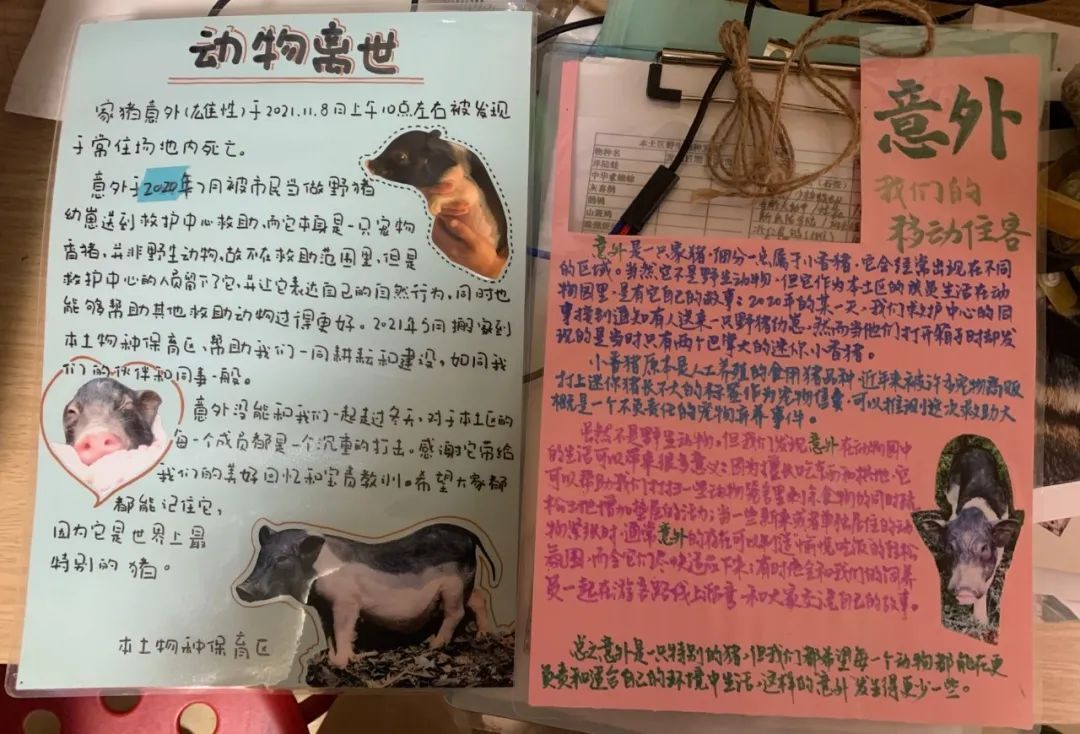 动物离世
家猪意外(雄性)于2021.11.8日上午10点左右被发现
于常住场地内死亡。
意外于2020年7月被市民当做野猪
幼崽送到救护中心救助,而它本身是一只宠物
香猪,并非野生动物,故不在救助范围里,但是
救护中心的人员留下了它,并让它表达自己的自然行为,同时也
能够帮助其他救助动物过得更好。2021年5月搬家到
本土物种保育区,帮助我们一同耕耘和建设,如同我
们的伙伴和同事一般。
意外没能和我们一起走过冬天,对于本土区的
每一个成员都是一个沉重的打击。感谢它带给
我们的美好回忆和宝贵教训。希望大家都
都能记住它,
因为它是世界上最
特别的猪。
本土物种保育区
意外
我们的
移动住客
物种名
中华蟾蜍
灰喜鹊
意外是一只家猪,细分一点属于小香猪,它会经常出现在不同
的区域。当然它不是野生动物,但它作为本土区的成员生活在动
物园里,是有它自己的故事:2020年的某一天,我们救护中心的同
事接到通知有人送来一只野猪幼崽,然而当他们打开箱子时却发
现的是当时只有两个巴掌大的迷你小香猪。
小香猪原本是人工养殖的食用猪品种,近年来被许多宠物商贩
打上迷你猪长不大的标签作为宠物售卖,可以推测小这次救助大
概是一个不负责任的宠物弃养事件。
虽然不是野生动物,但我们发现意外在动物园中
的生活可以带来很多意义:因为擅长吃东西和拱地,它
可以帮助我们打扫一些动物兽舍里剩余食物的同时疏
松土地增加垫层的活力;当一些新来或者单独居住的动
物紧张时,通常意外的存在可以制造愉悦吃饭的轻松
氛围,而令它们尽快适应下来;有时他会和我们的饲养
员一起在游客路线上溜青,和大家交流自己的故事。
总之意外是一只特别的猪,但我们都希望每一个动物都能在更
负责和适合自己的环境中生活,这样的意外发生得更少一些。